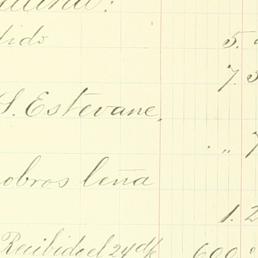 dido 5.
7.
S. Estevane,
" 7
obros leña
1.2
Recibido el 24 df 600